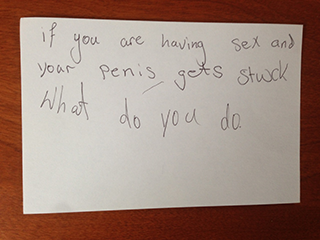 if you are having sex and
your penis gets stuck
What do you do.